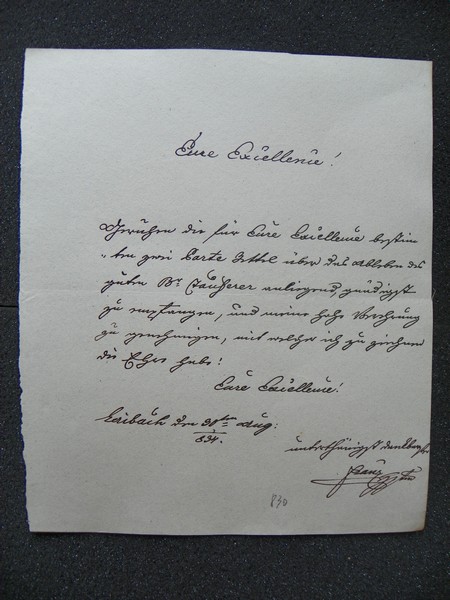 Eure Excellenue!
Geruhen die für Eure Excellenue bestim
"ten zwei Parte Zettel über das Ableben des
guten Br. Taufferer anliegend, gnädigst
zu empfangen, und meine hohe Verehrung
zu genehmigen, mit welcher ich zu zeichnen
die Ehre habe!
Eure Excellenue!
Laibach den 31ten Aug:
834.
unterthänigst dankbarster
Franz
830